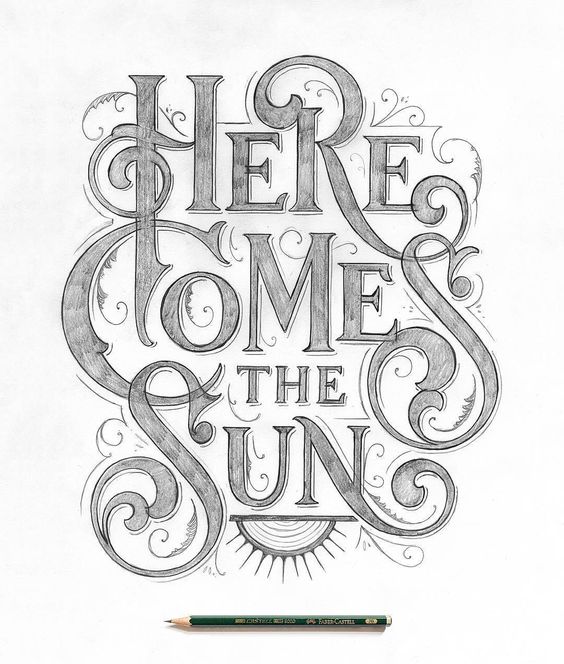 HERE
COMES
THE
SUN
CASTELL 9000 FABER-CASTELL